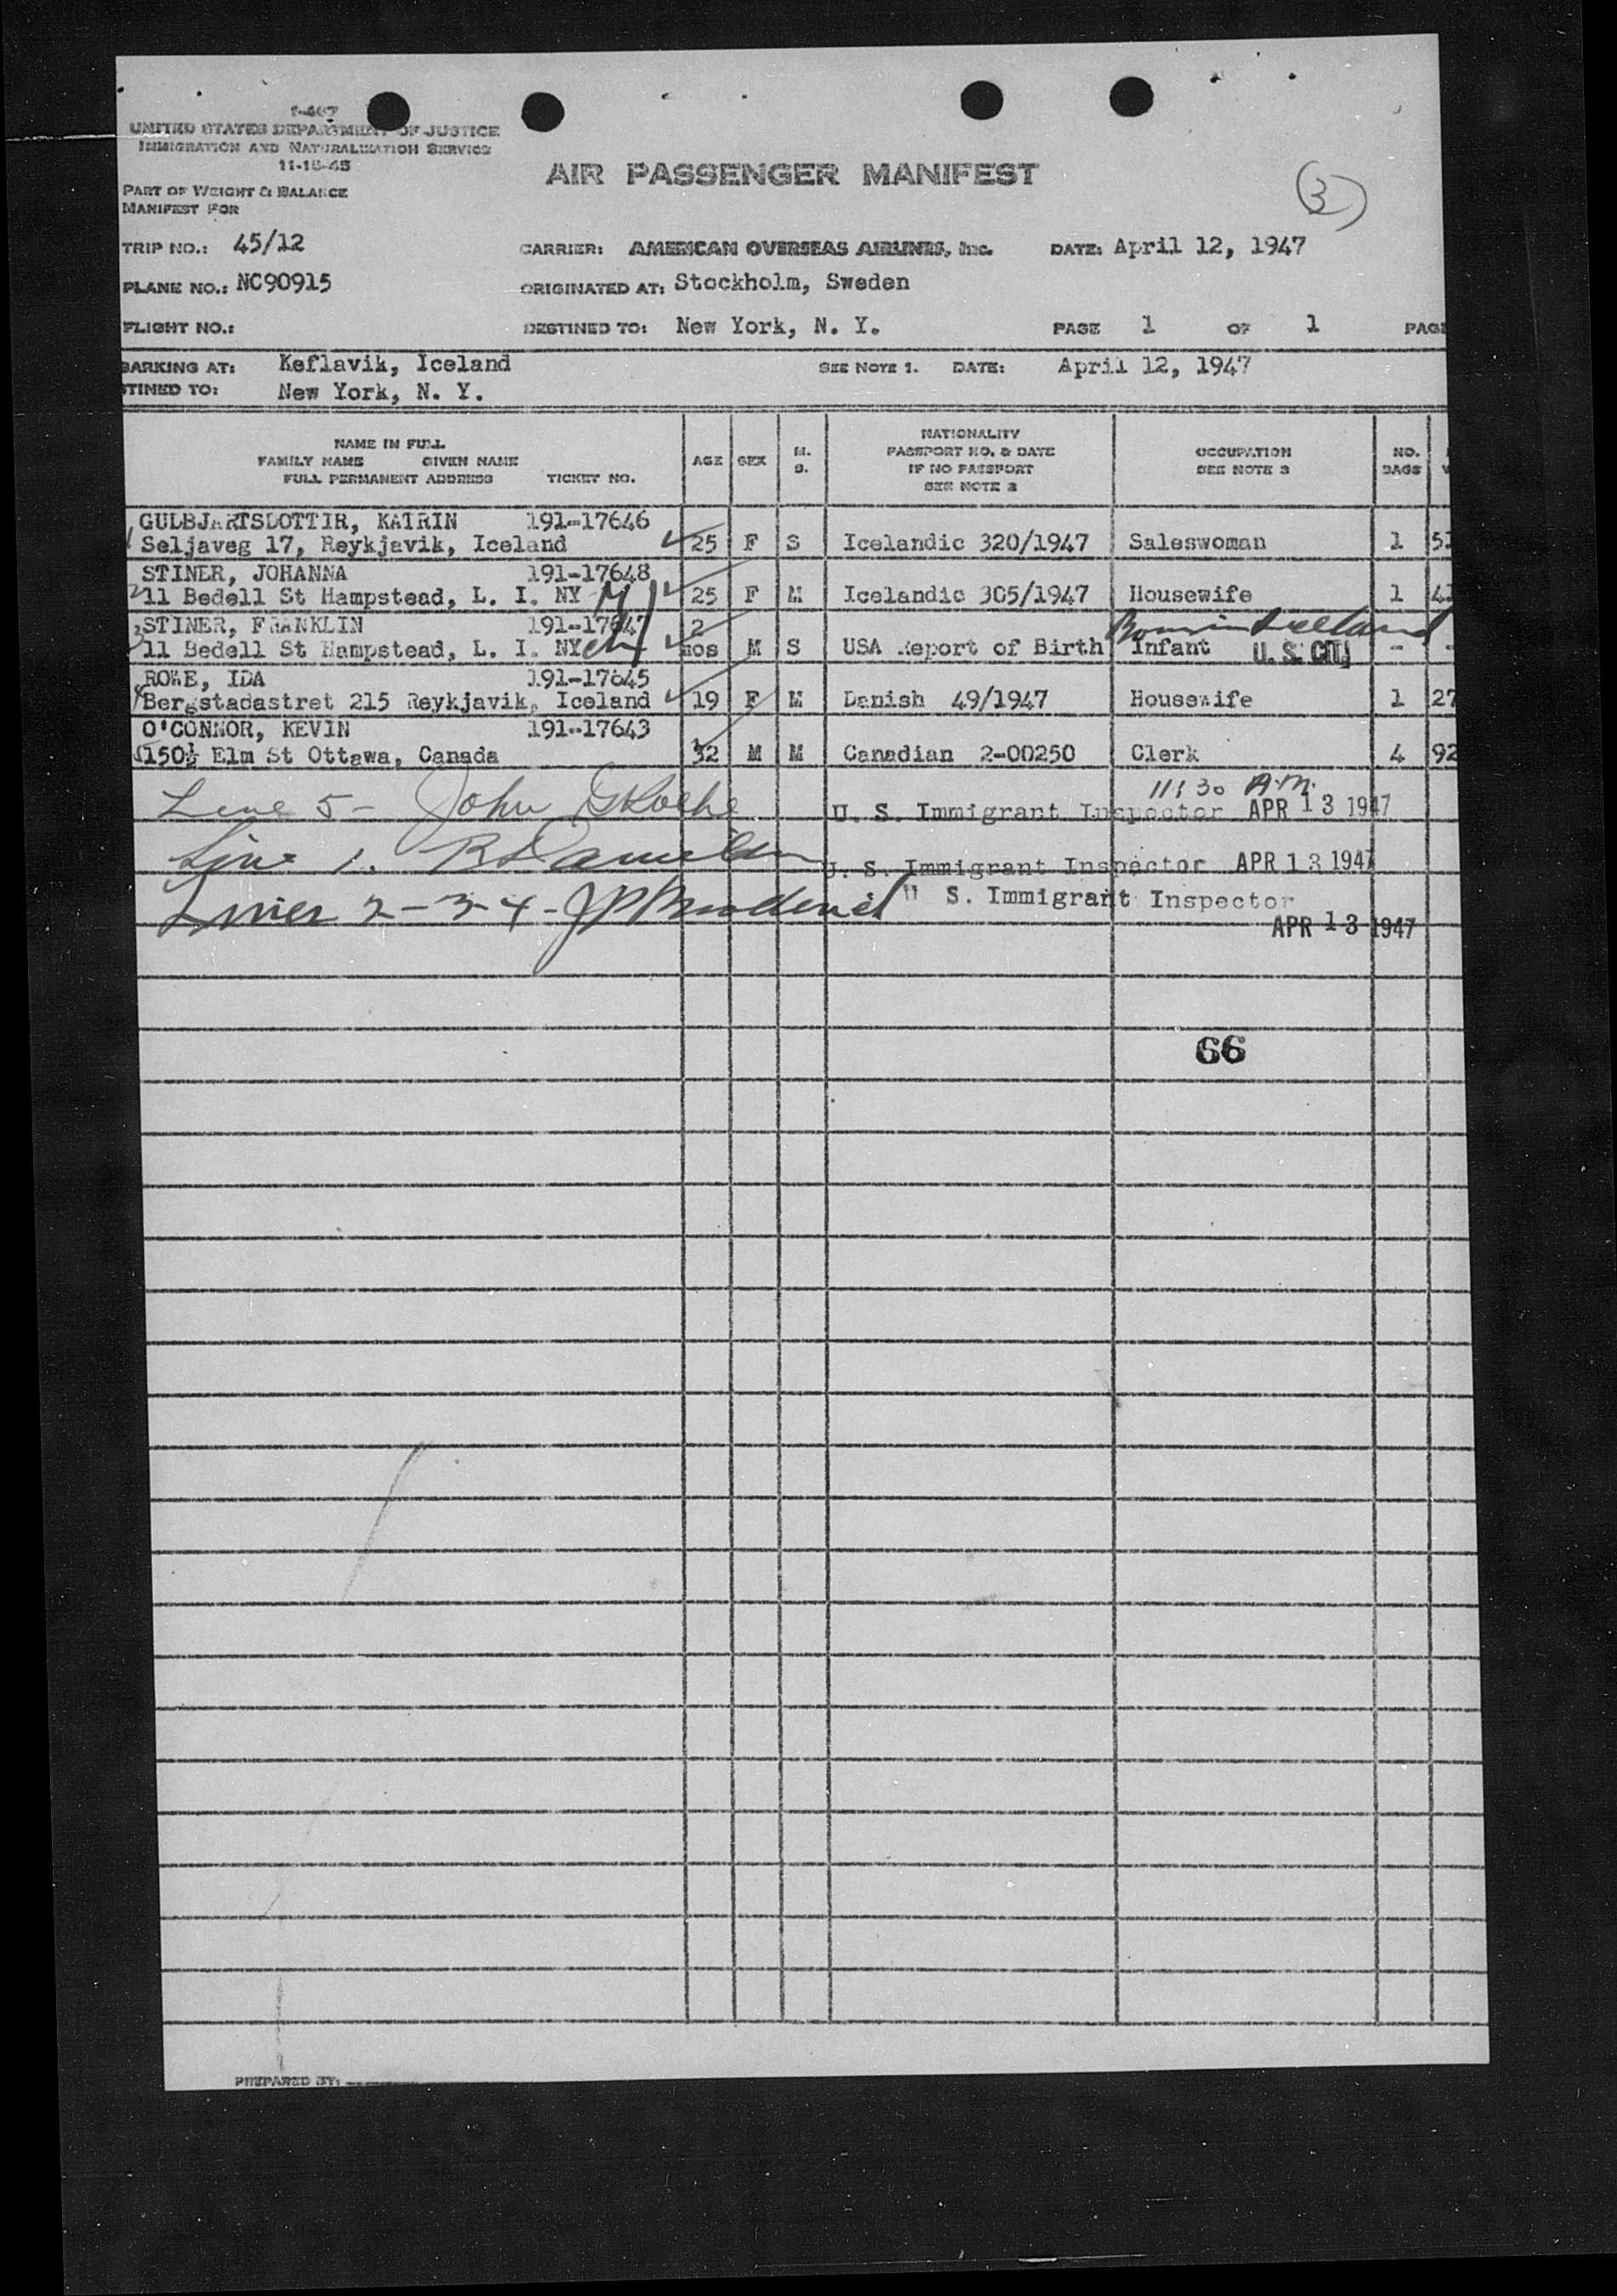 I-467
UNITED STATES DEPARTMENT OF JUSTICE
IMMIGRATION AND NATURALIZATION SERVICE
11-15-45
AIR PASSENGER MANIFEST
3
PART OF WEIGHT & BALANCE
MANIFEST FOR
TRIP NO.: 45/12 CARRIER: AMERICAN OVERSEAS AIRLINES, Inc. DATE: April 12, 1947
PLANE NO.: NC90915 ORIGINATED AT: Stockholm, Sweden
FLIGHT NO.: DESTINED TO: New York, N. Y. PAGE 1 OF 1 PAGE
BARKING AT: Keflavik, Iceland SEE NOTE 1. DATE: April 12, 1947
TINED TO: New York, N. Y.
NAME IN FULL
FAMILY NAME GIVEN NAME
FULL PERMANENT ADDRESS TICKET NO.
AGE SEX M. S.
NATIONALITY
PASSPORT NO. & DATE
IF NO PASSPORT
SEE NOTE 2
OCCUPATION
SEE NOTE 3
NO. BAGS
GULBJARTSDOTTIR, KATRIN 191-17646
1 Seljaveg 17, Reykjavik, Iceland 25 F S Icelandic 320/1947 Saleswoman 1
STINER, JOHANNA 191-17648
2 11 Bedell St Hampstead, L. I. NY 25 F M Icelandic 305/1947 Housewife 1
STINER, FRANKLIN 191-17647 2 Born in Iceland
3 11 Bedell St Hampstead, L. I. NY mos M S USA Report of Birth Infant U.S. CIT. - -
ROWE, IDA 191-17645
4 Bergstadastret 215 Reykjavik, Iceland 19 F M Danish 49/1947 Housewife 1 27
O'CONNOR, KEVIN 191-17643
5 150½ Elm St Ottawa, Canada 32 M M Canadian 2-00250 Clerk 4 92
11:30 A.M.
Line 5 - John U. S. Immigrant Inspector APR 13 1947
Line 1. U. S. Immigrant Inspector APR 13 1947
Lines 2-3-4- U S. Immigrant Inspector
APR 13 1947
66
PREPARED BY: